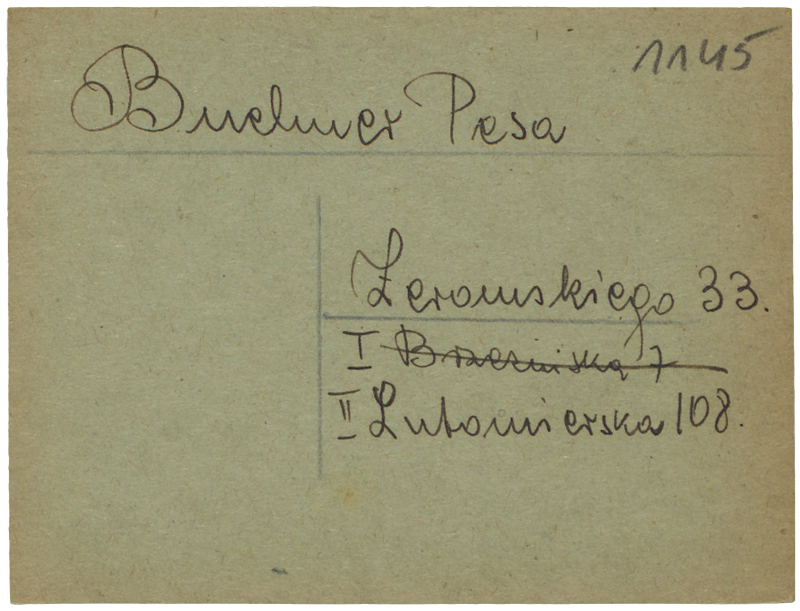 1145
Buchner Pesa
Żeromskiego 33.
I Brzezińska 7
II Lutomierska 108.